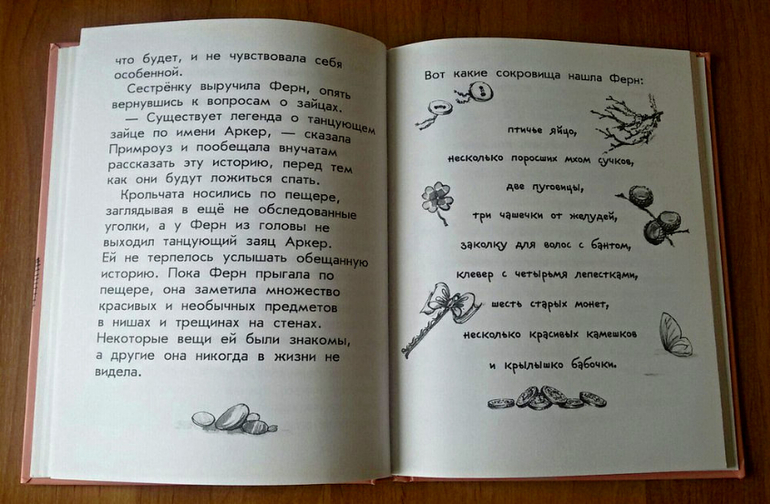 что будет, и не чувствовала себя
особенной.
Сестрёнку выручила Ферн, опять
вернувшись к вопросам о зайцах.
— Существует легенда о танцующем
зайце по имени Аркер, — сказала
Примроуз и пообещала внучатам
рассказать эту историю, перед тем
как они будут ложиться спать.
Крольчата носились по пещере,
заглядывая в ещё не обследованные
уголки, а у Ферн из головы не
выходил танцующий заяц Аркер.
Ей не терпелось услышать обещанную
историю. Пока Ферн прыгала по
пещере, она заметила множество
красивых и необычных предметов
в нишах и трещинах на стенах.
Некоторые вещи ей были знакомы,
а другие она никогда в жизни не
видела.
Вот какие сокровища нашла Ферн:
птичье яйцо,
несколько поросших мхом сучков,
две пуговицы,
три чашечки от желудей,
заколку для волос с бантом,
клевер с четырьмя лепестками,
шесть старых монет,
несколько красивых камешков
и крылышко бабочки.